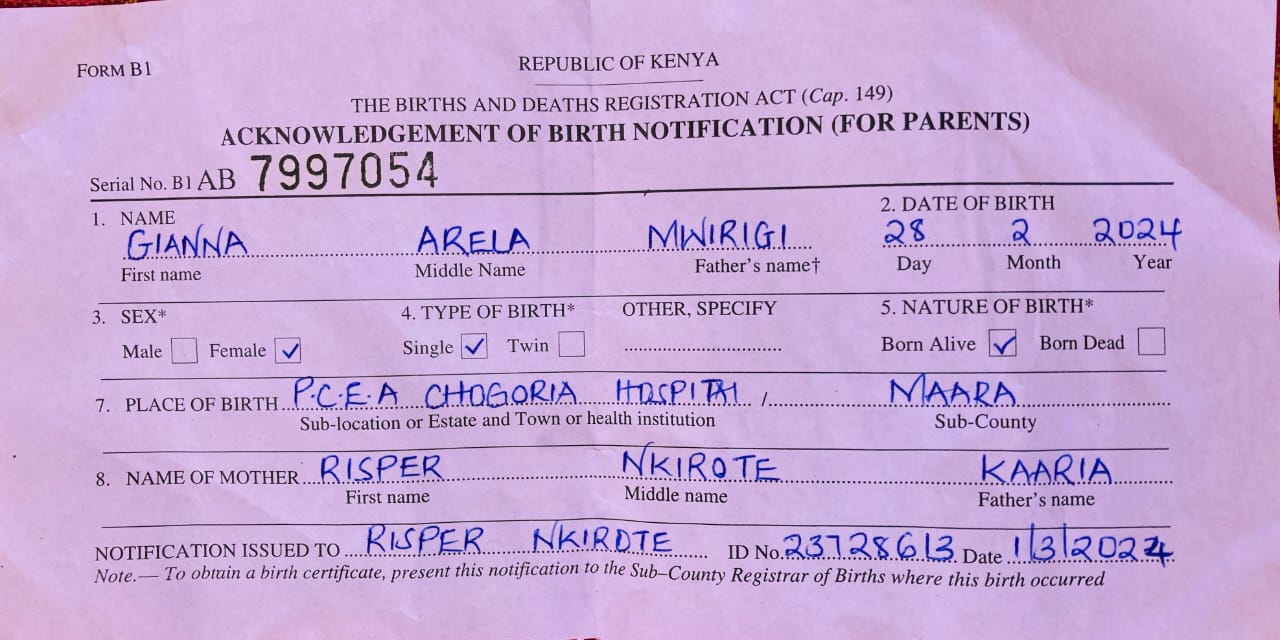 FORM B1
REPUBLIC OF KENYA
THE BIRTHS AND DEATHS REGISTRATION ACT (Cap. 149)
ACKNOWLEDGEMENT OF BIRTH NOTIFICATION (FOR PARENTS)
Serial No. B1 AB 7997054
1. NAME 2. DATE OF BIRTH
GIANNA ARELA MWIRIGI 28 2 2024
First name Middle Name Father's name† Day Month Year
3. SEX* 4. TYPE OF BIRTH* OTHER, SPECIFY 5. NATURE OF BIRTH*
Male Female ✓ Single ✓ Twin Born Alive ✓ Born Dead
7. PLACE OF BIRTH P.C.E.A CHOGORIA HOSPITAL / MAARA
Sub-location or Estate and Town or health institution Sub-County
8. NAME OF MOTHER RISPER NKIROTE KAARIA
First name Middle name Father's name
NOTIFICATION ISSUED TO RISPER NKIROTE ID No. 23728613 Date 1/3/2024
Note.— To obtain a birth certificate, present this notification to the Sub–County Registrar of Births where this birth occurred